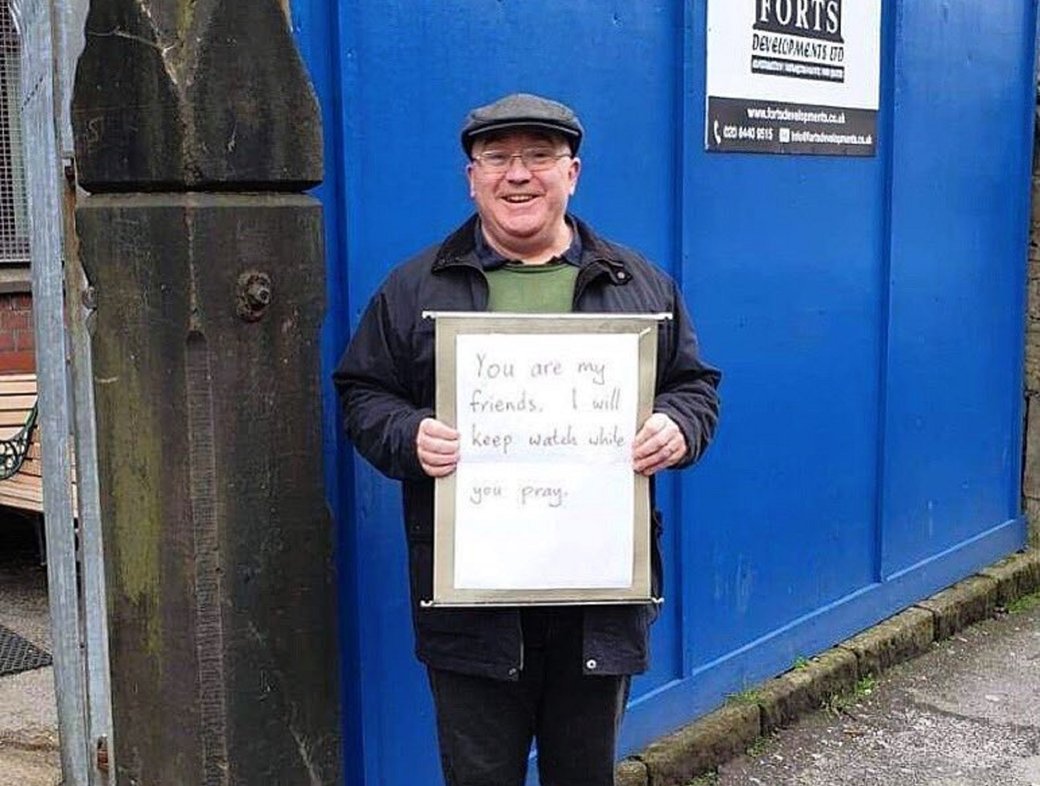 FORTS
DEVELOPMENTS LTD
www.fortsdevelopments.co.uk
020 8440 9515 info@fortsdevelopments.co.uk
You are my
friends. I will
keep watch while
you pray.